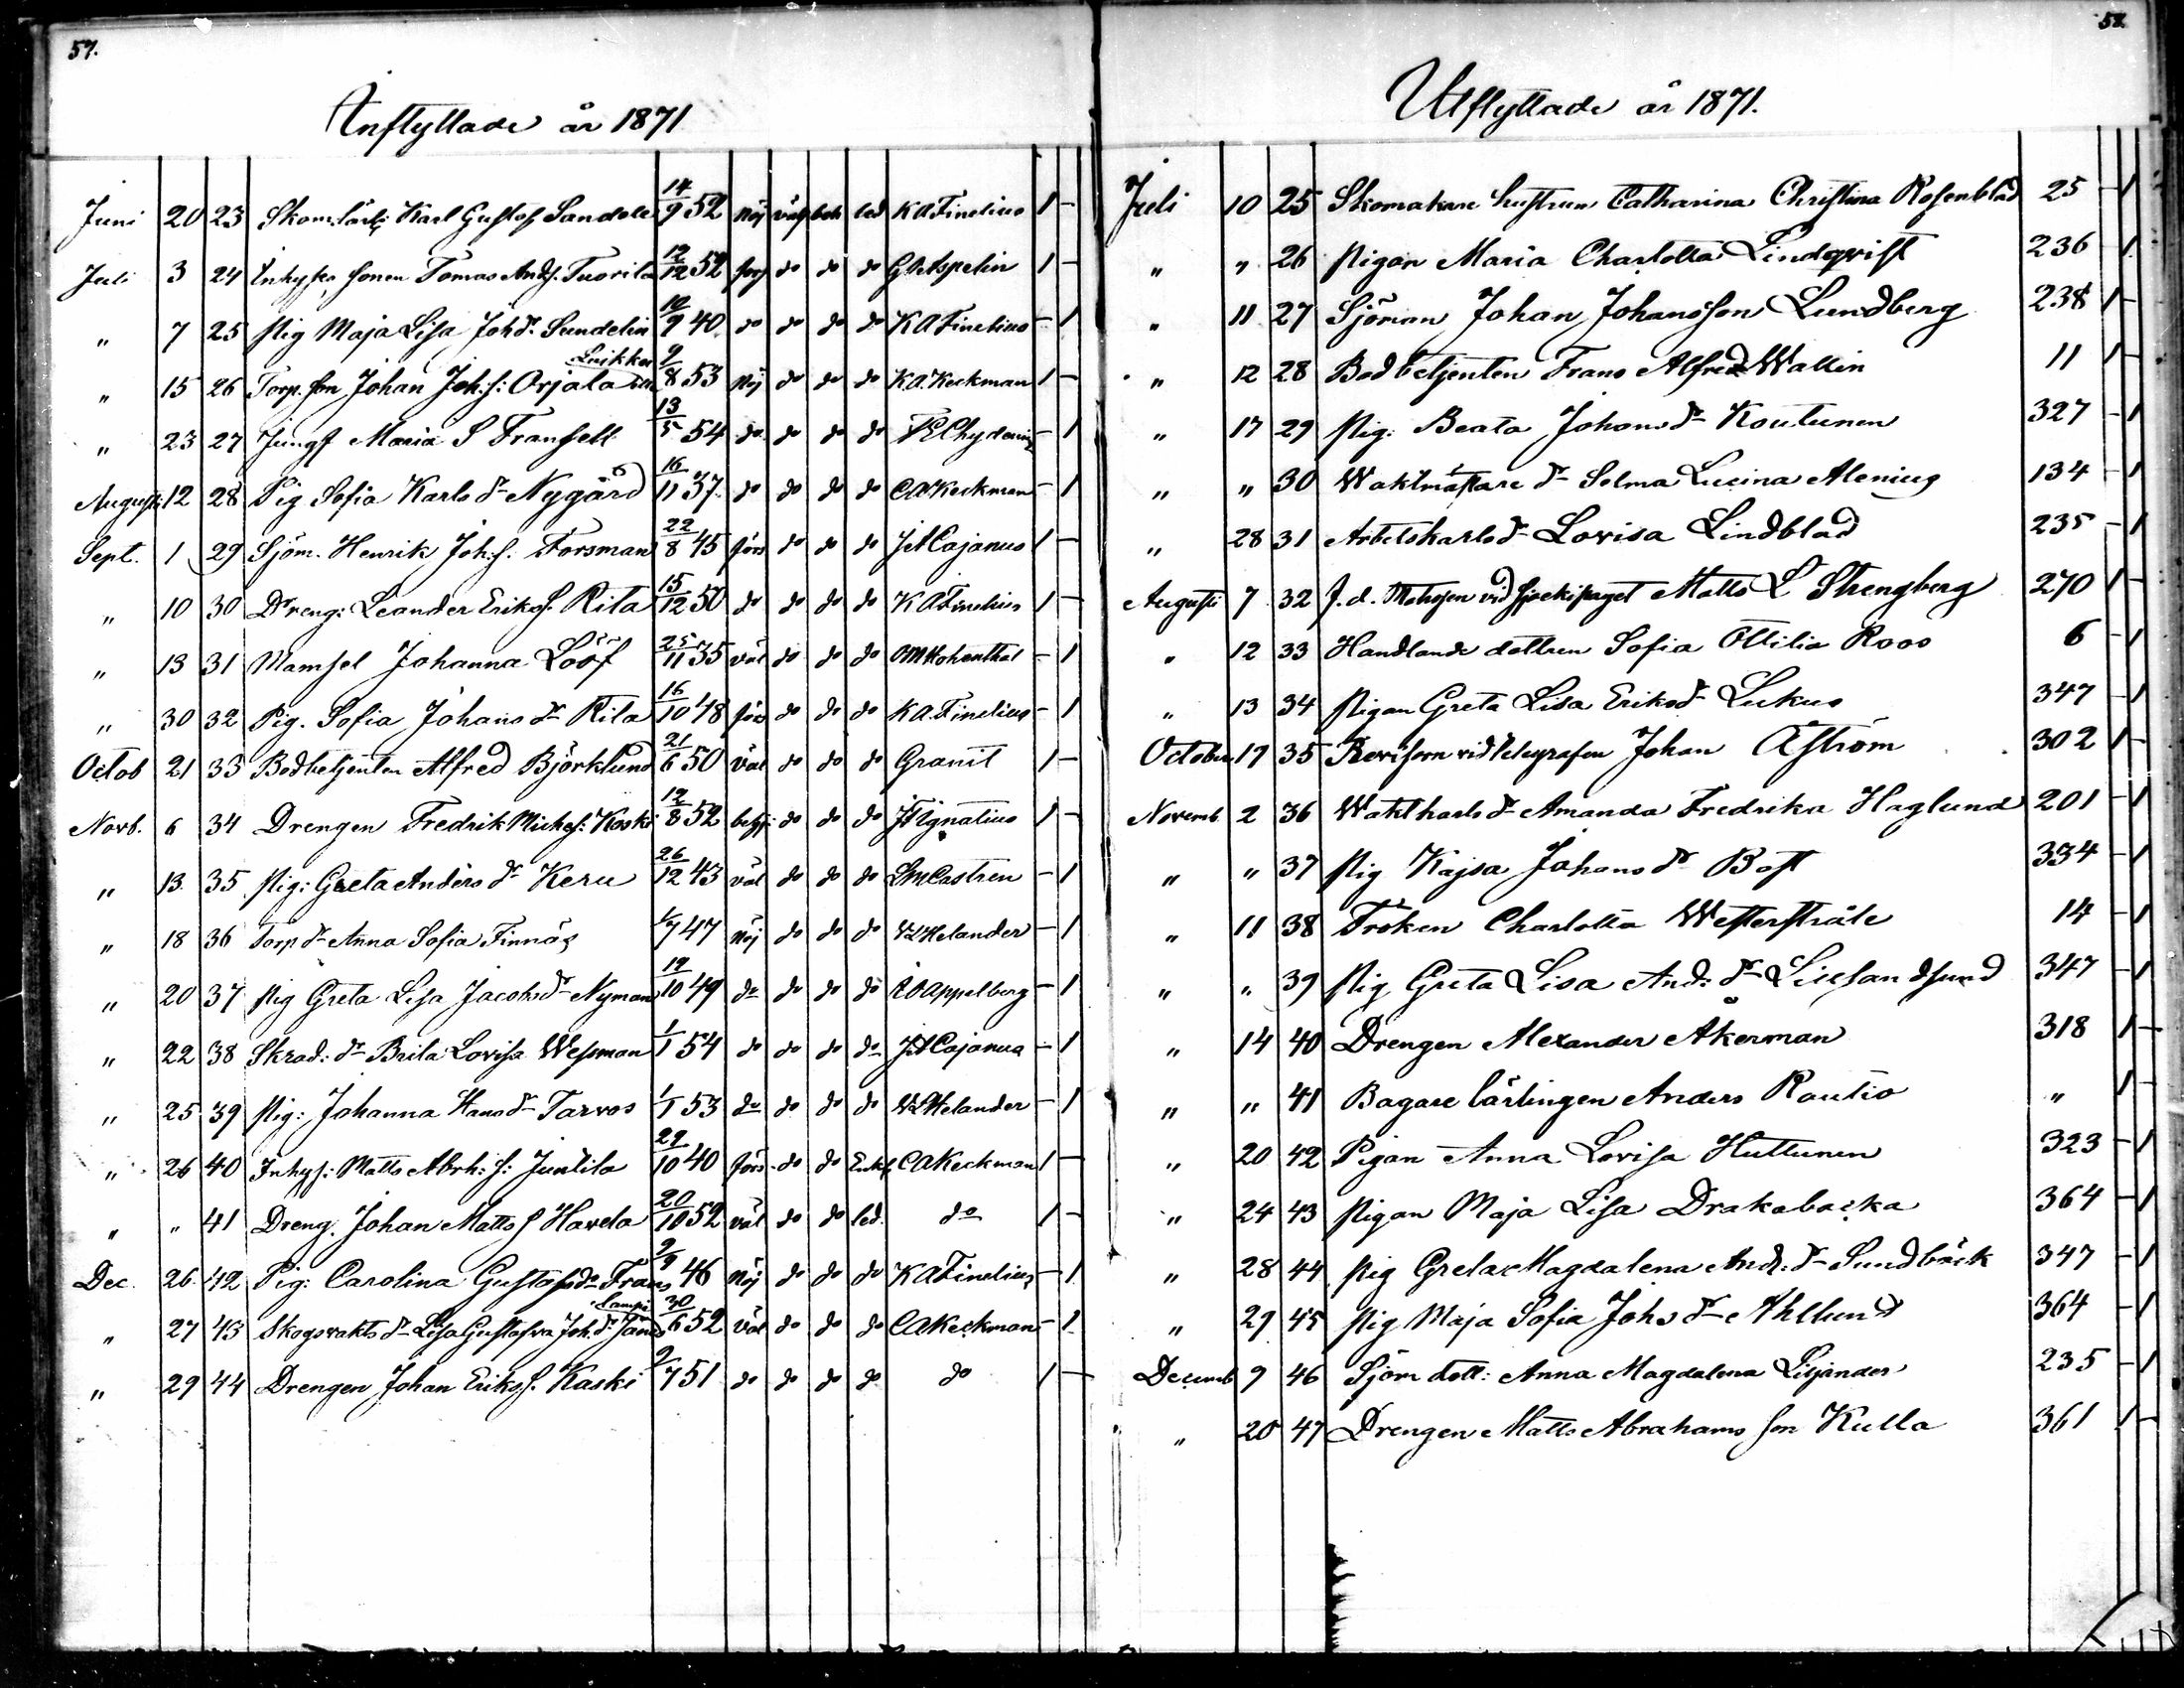 57.
Inflyttade år 1871
Juni 20 23 Skom: lärl: Karl Gustaf Sandell 14/9 52 nöj väl beh led K A Finelius 1 -
Juli 3 24 Inhyses sonen Tomas And.s. Tuorila 12/12 52 förs do do do G Aspelin 1 -
" 7 25 Pig Maja Lisa Joh dr. Sundelin 10/9 40 do do do do K A Finelius - 1
" 15 26 Torp. son Johan Joh.s: Orjala Luikko 9/8 53 nöj do do do K.A. Keckman 1 -
" 23 27 Jungf Maria S Fransell 13/5 54 do do do do F E Chydenius - 1
Augusti 12 28 Pig Sofia Karls dr Nygård 16/11 37. do do do do C A Keckman - 1
Sept. 1 29 Sjöm. Henrik Joh.s. Forsman 22/8 45 förs do do do J A Cajanus 1 -
" 10 30 Dreng: Leander Eriks s. Rita 15/12 50 do do do do K A Finelius 1 -
" 13 31 Mamsel Johanna Lööf 25/11 35 väl do do do O M Hohenthal - 1
" 30 32 Pig. Sofia Johans dr Rita 16/10 48 förs do do do K A. Finelius - 1
Octob 21 33 Bodbetjenten Alfred Björklund 21/6 50 väl do do do Granit 1 -
Novb. 6 34 Drengen Fredrik Mickels: Koski 12/8 52 do do do Ignatius 1 -
" 13. 35 Pig: Greta Anders dr Keru 26/12 43 väl do do do Castren - 1
" 18 36 Torp dr Anna Sofia Finnäs 1/7 47 nöj do do do Helander - 1
" 20 37 Pig Greta Lisa Jacobs dr Nyman 19/10 49 do do do do Appelberg - 1
" 22 38 Skrad: dr Brita Lovisa Wessman 1/1 54 do do do do J A Cajanus - 1
" 25 39 Pig: Johanna Hans dr Tarvos 1/1 53 do do do do Helander - 1
" 26 40 Inhys: Matts Abrh: s: Juntila 29/10 40 förs do do Enkl C A Keckman 1 -
" " 41 Dreng. Johan Matts s Havela 20/10 52 väl do do led. do 1 -
Dec. 26. 42 Pig: Carolina Gustafs dr Frans 9/9 46 nöj do do do K A Finelius - 1
" 27 43 Skogsvakts dr Lisa Gustafva Joh. dr. Lampi 30/6 52 väl do do do C A Keckman - 1
" 29 44 Drengen Johan Eriks s. Kaski 9/7 51 do do do do do 1 -
58
Utflyttade år 1871.
Juli 10 25 Skomakare hustrun Catharina Christina Rosenblad 25 - 1
" " 26 Pigan Maria Charlotta Lindqvist 236 - 1
" 11 27 Sjöman Johan Johansson Lundberg 238 1 -
" 12 28 Bodbetjenten Frans Alfred Wallin 11 1 -
" 17 29 Pig: Beata Johans dr Koutunen 327 - 1
" " 30 Waktmästare dr Selma Lucina Alenius 134 - 1
" 28 31 Arbetskarls dr Lovisa Lindblad 235 - 1
Augusti 7 32 f.d. Matrosen vid Matts L Strengberg 270 1 -
" 12 33 Handlande dottren Sofia Ottilia Roos 6 - 1
" 13 34 Pigan Greta Lisa Eriks dr Lukus 347 - 1
October 17 35 Revisorn vid telegrafen Johan Åström 302 1 -
Novemb 2 36 Waktkarls dr Amanda Fredrika Haglund 201 - 1
" " 37 Pig Kajsa Johans dr Bost 334 - 1
" 11 38 Fröken Charlotta Westerstråle 14 - 1
" " 39 Pig Greta Lisa And: dr Liisandsund 347 - 1
" 14 40 Drengen Alexander Åkerman 318 1 -
" " 41 Bagare lärlingen Anders Rautio " 1 -
" 20 42 Pigan Anna Lovisa Huttunen 323 - 1
" 24 43 Pigan Maja Lisa Drakabacka 364 - 1
" 28 44 Pig Greta Magdalena And: dr Sundbäck 347 - 1
" 29 45 Pig Maja Sofia Johs dr Ahllund 364 - 1
Decemb 9 46 Sjöm dott: Anna Magdalena Liljander 235 - 1
" 20 47 Drengen Matts Abrahams son Kulla 361 1 -